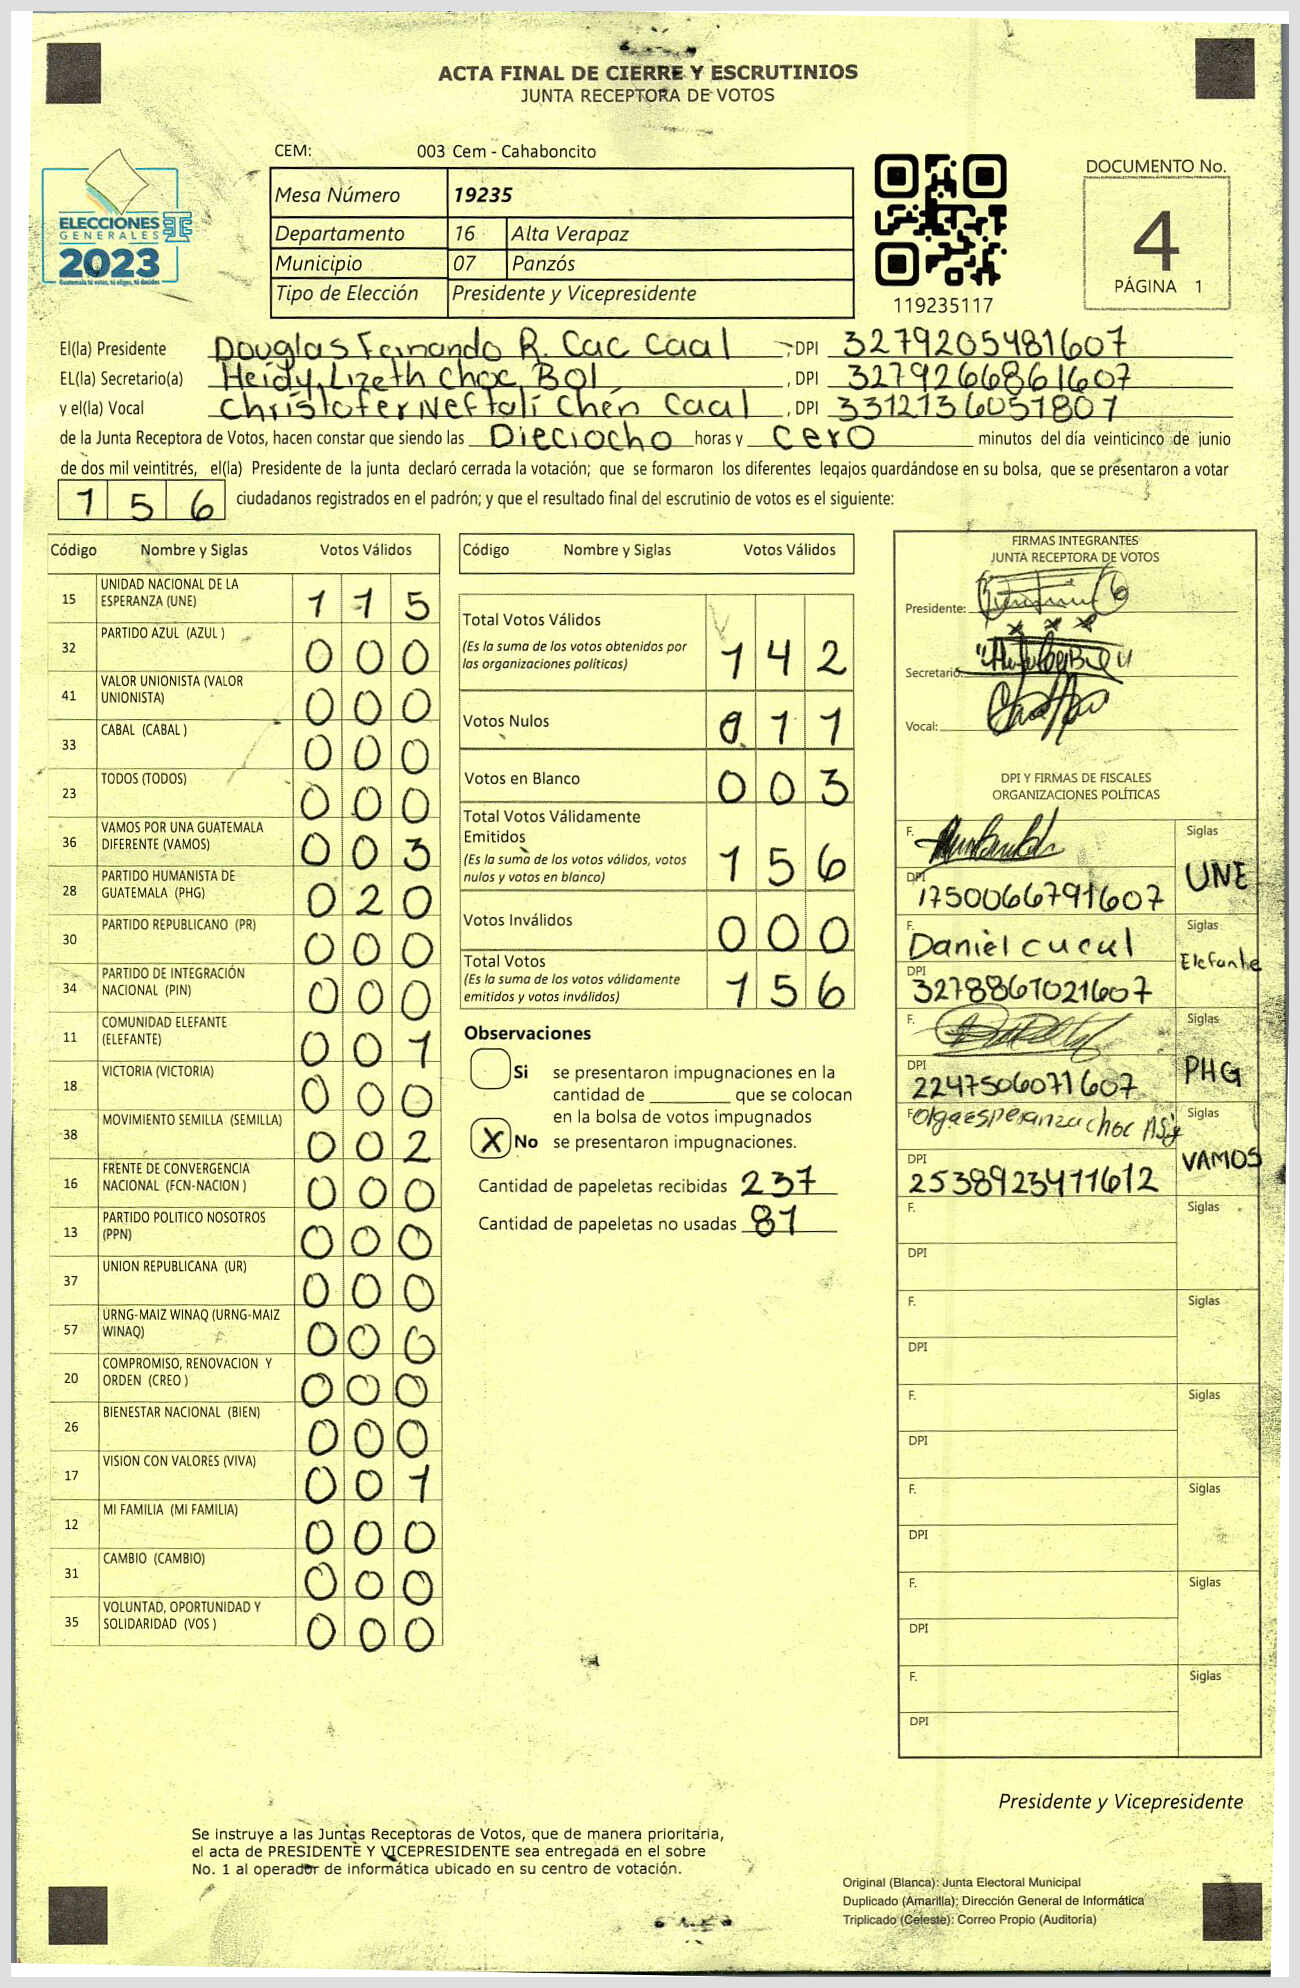 ACTA FINAL DE CIERRE Y ESCRUTINIOS
JUNTA RECEPTORA DE VOTOS
CEM: 003 Cem - Cahaboncito
ELECCIONES
GENERALES
2023
Guatemala tú votas, tú eliges, tú decides
Mesa Número 19235
Departamento 16 Alta Verapaz
Municipio 07 Panzós
Tipo de Elección Presidente y Vicepresidente
119235117
DOCUMENTO No.
4
PÁGINA 1
El(la) Presidente Douglas Fernando R. Cac Caal, DPI 3279205481607
EL(la) Secretario(a) Heidy Lizeth Choc Bol, DPI 3279266861607
y el(la) Vocal Christofer Neftalí Chén Caal, DPI 3312136051807
de la Junta Receptora de Votos, hacen constar que siendo las Dieciocho horas y cero minutos del día veinticinco de junio
de dos mil veintitrés, el(la) Presidente de la junta declaró cerrada la votación; que se formaron los diferentes legajos guardándose en su bolsa, que se presentaron a votar
156 ciudadanos registrados en el padrón; y que el resultado final del escrutinio de votos es el siguiente:
Código Nombre y Siglas Votos Válidos
15 UNIDAD NACIONAL DE LA ESPERANZA (UNE) 115
32 PARTIDO AZUL (AZUL ) 000
41 VALOR UNIONISTA (VALOR UNIONISTA) 000
33 CABAL (CABAL ) 000
23 TODOS (TODOS) 000
36 VAMOS POR UNA GUATEMALA DIFERENTE (VAMOS) 003
28 PARTIDO HUMANISTA DE GUATEMALA (PHG) 020
30 PARTIDO REPUBLICANO (PR) 000
34 PARTIDO DE INTEGRACIÓN NACIONAL (PIN) 000
11 COMUNIDAD ELEFANTE (ELEFANTE) 001
18 VICTORIA (VICTORIA) 000
38 MOVIMIENTO SEMILLA (SEMILLA) 002
16 FRENTE DE CONVERGENCIA NACIONAL (FCN-NACION ) 000
13 PARTIDO POLITICO NOSOTROS (PPN) 000
37 UNION REPUBLICANA (UR) 000
57 URNG-MAIZ WINAQ (URNG-MAIZ WINAQ) 00
20 COMPROMISO, RENOVACION Y ORDEN (CREO ) 000
26 BIENESTAR NACIONAL (BIEN) 000
17 VISION CON VALORES (VIVA) 001
12 MI FAMILIA (MI FAMILIA) 000
31 CAMBIO (CAMBIO) 000
35 VOLUNTAD, OPORTUNIDAD Y SOLIDARIDAD (VOS ) 000
Código Nombre y Siglas Votos Válidos
Total Votos Válidos
(Es la suma de los votos obtenidos por las organizaciones políticas) 142
Votos Nulos 011
Votos en Blanco 003
Total Votos Válidamente Emitidos
(Es la suma de los votos válidos, votos nulos y votos en blanco) 156
Votos Inválidos 000
Total Votos
(Es la suma de los votos válidamente emitidos y votos inválidos) 156
Observaciones
Si se presentaron impugnaciones en la
cantidad de ________ que se colocan
en la bolsa de votos impugnados
X No se presentaron impugnaciones.
Cantidad de papeletas recibidas 237
Cantidad de papeletas no usadas 81
FIRMAS INTEGRANTES
JUNTA RECEPTORA DE VOTOS
Presidente:
Secretario:
Vocal:
DPI Y FIRMAS DE FISCALES
ORGANIZACIONES POLÍTICAS
F. Siglas
DPI 1750066791607 UNE
F. Daniel cucul Siglas
DPI 3278861021607 Elefante
F. Siglas
DPI 2247506071607 PHG
F. Olga esperanza choc Siglas
DPI 2538923411612 VAMOS
F. Siglas
DPI
F. Siglas
DPI
F. Siglas
DPI
F. Siglas
DPI
F. Siglas
DPI
F. Siglas
DPI
Presidente y Vicepresidente
Se instruye a las Juntas Receptoras de Votos, que de manera prioritaria,
el acta de PRESIDENTE Y VICEPRESIDENTE sea entregada en el sobre
No. 1 al operador de informática ubicado en su centro de votación.
Original (Blanca): Junta Electoral Municipal
Duplicado (Amarilla): Dirección General de Informática
Triplicado (Celeste): Correo Propio (Auditoría)